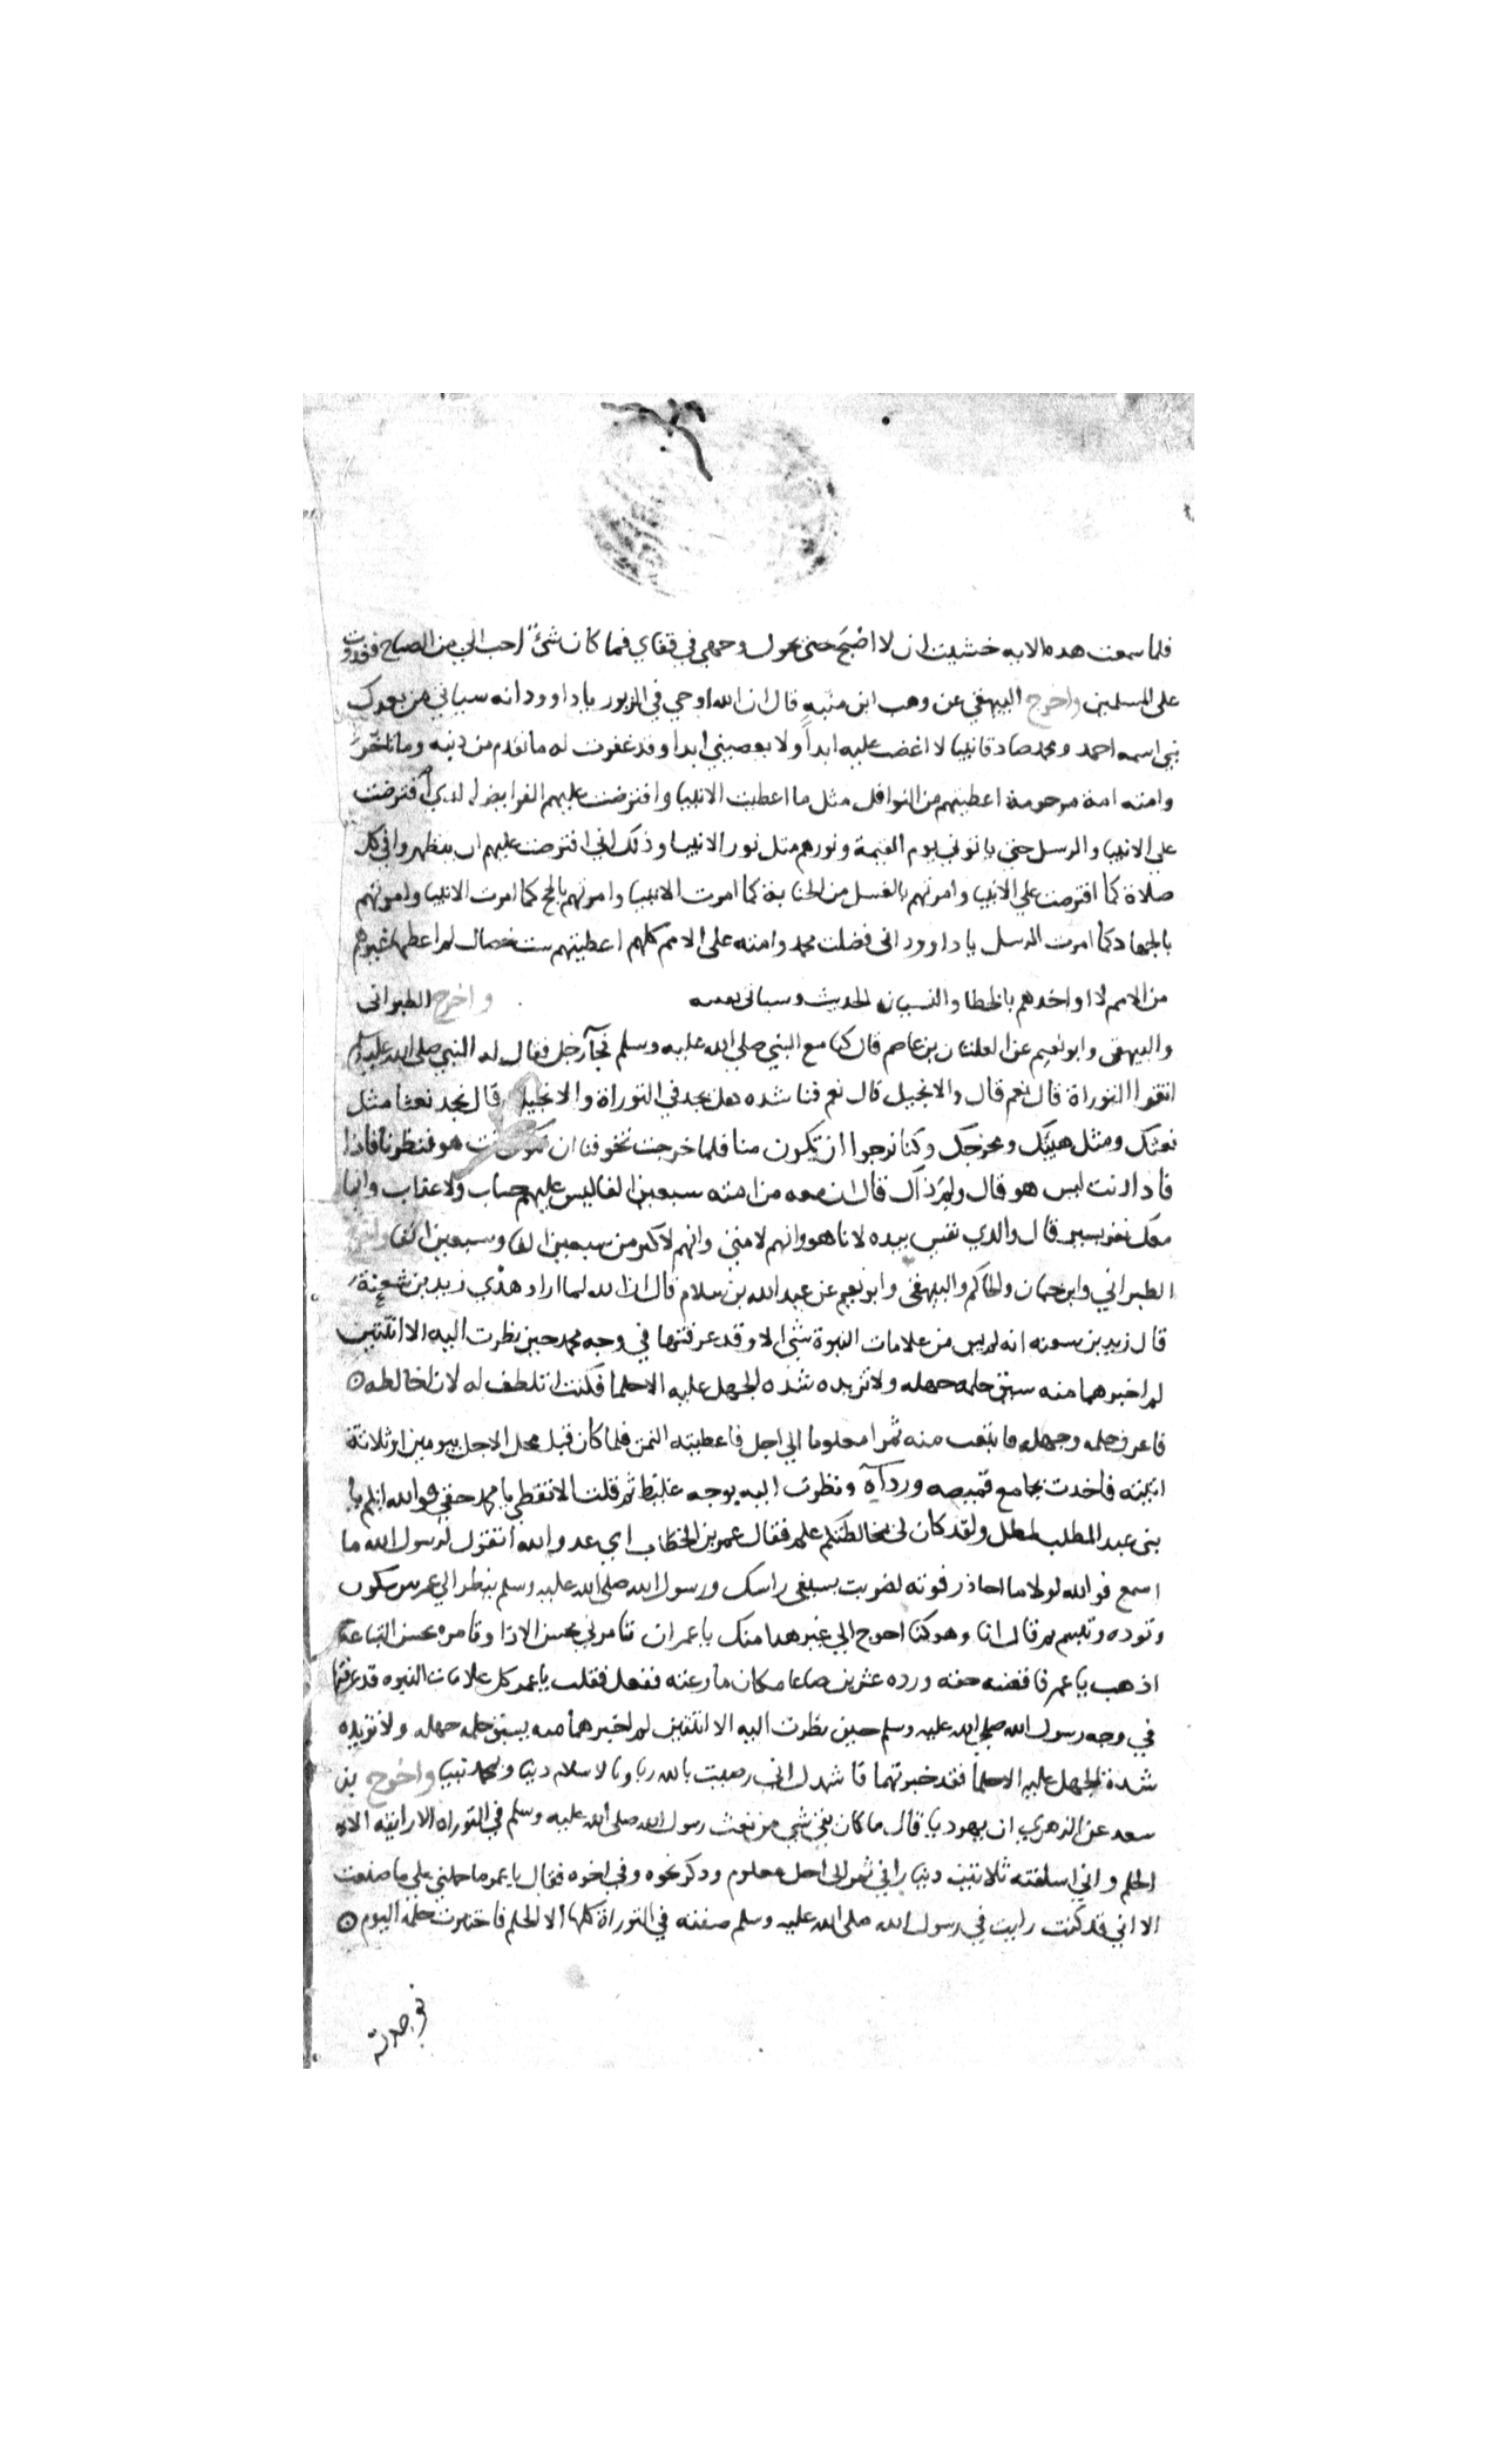 فلما سمعت هذه الايه خشيت ان لا اصبح حتى يحول وجهي في قفاي فما كان شئ احب الي من الصباح فغدوت
على المسلمين واخرج البيهقي عن وهب ابن منبه قال ان الله اوحي في الزبور يا داوود انه سياتي من بعدك
نبي اسمه احمد ومحمد صادقا نبيا لا اغضب عليه ابداً ولا يعصيني ابدا وقد غفرت له ما تقدم من ذنبه وما تاخر
وامته امة مرحومة اعطيتهم من النوافل مثل ما اعطيت الانبيا وافترضت عليهم الفرايض الذي افترضت
علي الانبيا والرسل حتي ياتوني يوم القيمة ونورهم مثل نور الانبيا وذلك اني افترضت عليهم ان يتطهروا في كل
صلاة كما افترضت علي الانبيا وامرتهم بالغسل من الجنابة كما امرت الانبيا وامرتهم بالحج كما امرت الانبيا وامرتهم
بالجهاد كما امرت الرسل يا داوود اني فضلت محمد وامته على الامم كلهم اعطيتهم ست خصال لم اعطها غيرهم
من الامم لا اواخدهم بالخطا والنسيان الحديث وسياتي بتمامه واخرج الطبراني
والبيهقي وابو نعيم عن الفلتان بن عاصم قال كنا مع النبي صلي الله عليه وسلم فجآ رجل فقال له النبي صلى الله عليه وسلم
اتقوا التوراة قال نعم قال والانجيل قال نعم فناشده هل تجد في التوراة والانجيل قال نجد نعتا مثل
نعتك ومثل هيئتك ومخرجك وكنا نرجوا ان تكون منا فلما خرجت تخوفنا ان تكون انت هو فنظرنا فاذا
فاذا انت ليس هو قال ولم ذاك قال ان معه من امته سبعين الفا ليس عليهم حساب ولا عذاب وانما
معك نفر يسير قال والدي نفسي بيده لانا هو وانهم لامتي وانهم لاكثر من سبعين الفا وسبعين الفا واخرج
الطبراني وابن حبان والحاكم والبيهقي وابو نعيم عن عبد الله بن سلام قال ان الله لما اراد هدي زيد بن سعنة
قال زيد بن سعنه انه لم يبق من علامات النبوة شئ الا وقد عرفتها في وجه محمد حين نظرت اليه الا اثنتين
لم اخبرهما منه يسبق حلمه جهله ولا تزيده شدة الجهل عليه الا حلما فكنت اتلطف له لان اخالطه ⊙
فاعرف حلمه وجهله فابتعت منه تمرا معلوما الي اجل فاعطيته الثمن فلما كان قبل محل الاجل بيومين او ثلاثة
اتيته فاخدت بجامع قميصه وردآه ونظرت اليه بوجه غليظ ثم قلت الا تقضي يا محمد حقي فوالله انكم يا
بني عبد المطلب لمطل ولقد كان لي بمخالطتكم علم فقال عمر بن الخطاب اي عدو الله اتقول لرسول الله ما
اسمع فوالله لولا ما احاذر فوته لضربت بسيفي راسك ورسول الله صلى الله عليه وسلم ينظر الي عمر في سكون
وتوده وتبسم ثم قال انا وهو كنا احوج الي غير هدا منك يا عمر ان تامرني بحسن الادا وتامره بحسن التباعة
اذهب يا عمر فاقضه حقه وزده عشرين صاعا مكان ما رعته ففعل فقلت يا عمر كل علامات النبوه قد عرفتها
في وجه رسول الله صلى الله عليه وسلم حين نظرت اليه الا اثنتين لم اخبرهما منه يسبق حلمه جهله ولا تزيده
شدة الجهل عليه الا حلما فقد خبرتهما فاشهدك اني رضيت بالله ربا وبالاسلام دينا وبمحمد نبيا واخرج بن
سعد عن الزهري ان يهوديا قال ما كان بقي شي من نعت رسول الله صلى الله عليه وسلم في التوراه الا رايته الا
الحلم واني اسلفته ثلاثين دينارا في تمر الى اجل معلوم وذكر نحوه وفي اخره فقال يا عمر ما حملني على ما صنعت
الا اني قد كنت رايت في رسول الله صلى الله عليه وسلم صفته في التوراة كلها الا الحلم فاختبرت حلمه اليوم ⊙
فوجدته